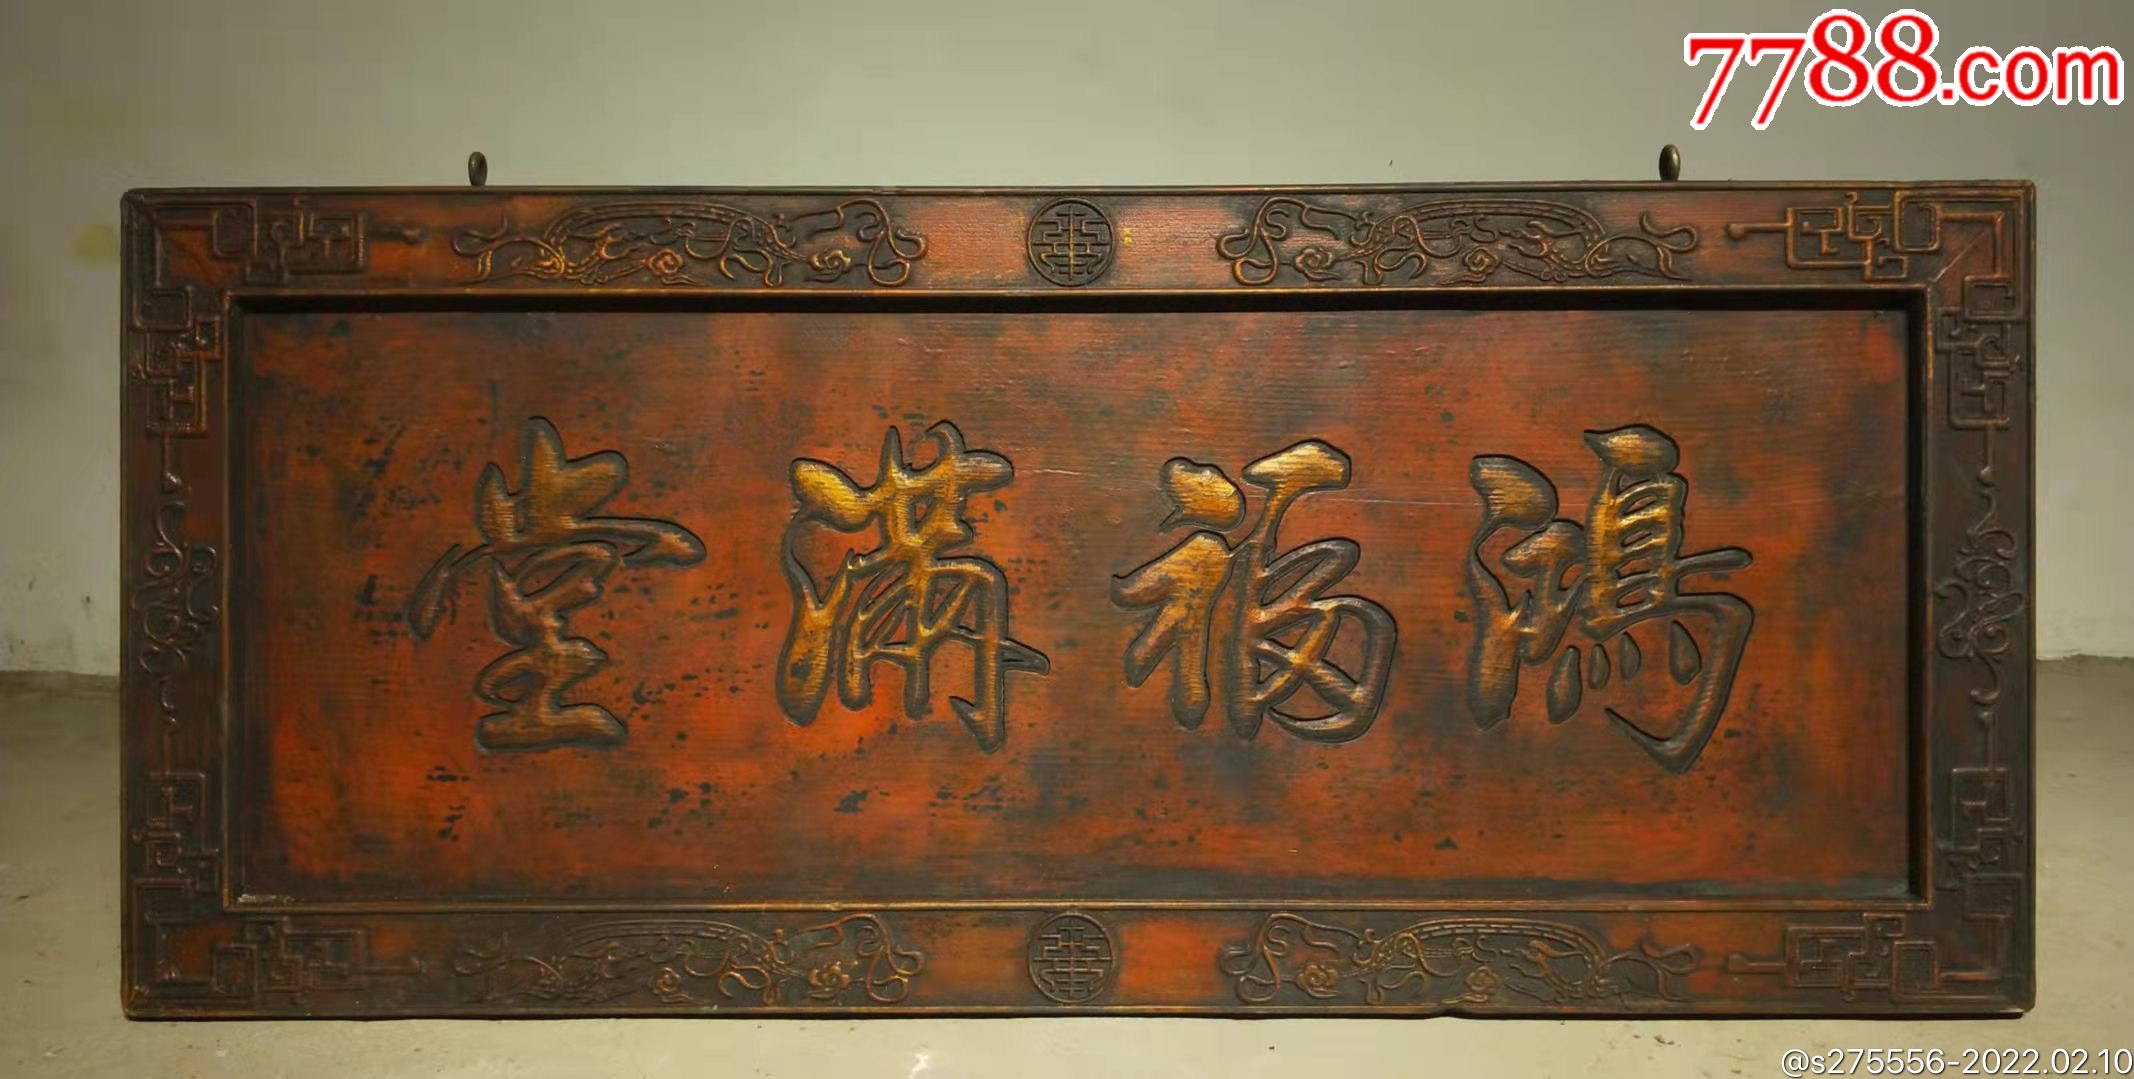 7788.com
鴻福滿堂
@s275556-2022.02.10